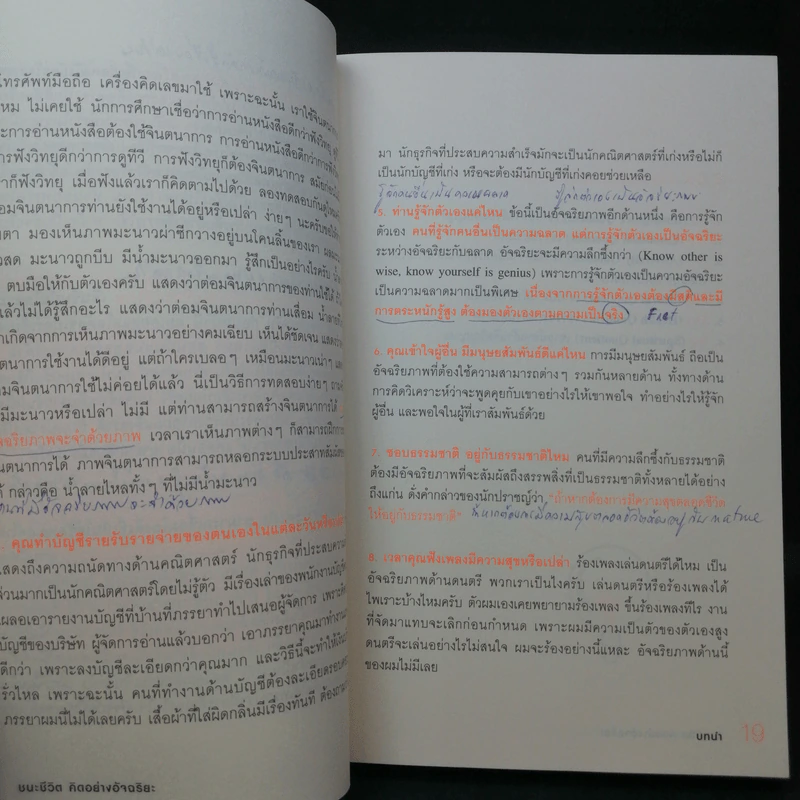 โทรศัพท์มือถือ เครื่องคิดเลขมาใช้ เพราะฉะนั้น เราใช้จินตนา
ไหม ไม่เคยใช้ นักการศึกษาเชื่อว่าการอ่านหนังสือดีกว่าฟังวิทยุ
ะการอ่านหนังสือต้องใช้จินตนาการ การอ่านหนังสือดีกว่าการฟัง
ารฟังวิทยุดีกว่าการดูทีวี การฟังวิทยุก็ต้องจินตนาการ
าก็ฟังวิทยุ เมื่อฟังแล้วเราก็คิดตามไปด้วย ลองทดสอบกันดู
่อมจินตนาการท่านยังใช้งานได้อยู่หรือเปล่า ง่ายๆ นะครับ
ตา มองเห็นภาพมะนาวผ่าซีกวางอยู่บนโคนลิ้นของเรา
วสด มะนาวถูกบีบ มีน้ำมะนาวออกมา รู้สึกเป็นอย่างไรครับ
ตบมือให้กับตัวเองครับ แสดงว่าต่อมจินตนาการของท่านใช้ได้
แล้วไม่ได้รู้สึกอะไร แสดงว่าต่อมจินตนาการท่านเสื่อม
เกิดจากการเห็นภาพมะนาวอย่างคมเฉียบ เห็นได้ชัดเจน
นตนาการใช้งานได้ดีอยู่ แต่ถ้าใครเบลอๆ เหมือนมะนาวเน่าๆ
อมจินตนาการใช้ไม่ค่อยได้แล้ว นี่เป็นวิธีการทดสอบง่ายๆ
มีมะนาวหรือเปล่า ไม่มี แต่ท่านสามารถสร้างจินตนาการได้
จฉริยภาพจะจำด้วยภาพ เวลาเราเห็นภาพต่างๆ ก็สามารถฝึก
นตนาการได้ ภาพจินตนาการสามารถหลอกระบบประสาทสัมผัส
ด้ กล่าวคือ น้ำลายไหลทั้งๆ ที่ไม่มีน้ำมะนาว
คนที่มีอัจฉริยภาพจะจำด้วยภาพ
. คุณทำบัญชีรายรับรายจ่ายของตนเองในแต่ละวันหรือ
แสดงถึงความถนัดทางด้านคณิตศาสตร์ นักธุรกิจที่ประสบความ
ส่วนมากเป็นนักคณิตศาสตร์โดยไม่รู้ตัว มีเรื่องเล่าของพนักงานบัญชี
ผลอเอารายงานบัญชีที่บ้านที่ภรรยาทำไปเสนอผู้จัดการ เพราะ
บัญชีของบริษัท ผู้จัดการอ่านแล้วบอกว่า เอาภรรยาคุณมาทำงาน
ดีกว่า เพราะลงบัญชีละเอียดกว่าคุณมาก และวิธีนี้จะทำให้เงิน
รั่วไหล เพราะฉะนั้น คนที่ทำงานด้านบัญชีต้องละเอียดรอบคอบ
ภรรยาผมนี่ไม่ได้เลยครับ เสื้อผ้าที่ใส่ผิดกลิ่นมีเรื่องทันที ต้อง
ชนะชีวิต คิดอย่างอัจฉริยะ
มา นักธุรกิจที่ประสบความสำเร็จมักจะเป็นนักคณิตศาสตร์ที่เก่งหรือไม่ก็
เป็นนักบัญชีที่เก่ง หรือจะต้องมีนักบัญชีที่เก่งคอยช่วยเหลือ
รู้จักคนอื่นเป็นความฉลาด รู้จักตัวเองเป็นอัจฉริยภาพ
5. ท่านรู้จักตัวเองแค่ไหน ข้อนี้เป็นอัจฉริยภาพอีกด้านหนึ่ง คือการรู้จัก
ตัวเอง คนที่รู้จักคนอื่นเป็นความฉลาด แต่การรู้จักตัวเองเป็นอัจฉริยะ
ระหว่างอัจฉริยะกับฉลาด อัจฉริยะจะมีความลึกซึ้งกว่า (Know other is
wise, know yourself is genius) เพราะการรู้จักตัวเองเป็นความอัจฉริยะ
เป็นความฉลาดมากเป็นพิเศษ เนื่องจากการรู้จักตัวเองต้องมีสติและมี
การตระหนักรู้สูง ต้องมองตัวเองตามความเป็นจริง
6. คุณเข้าใจผู้อื่น มีมนุษยสัมพันธ์ดีแค่ไหน การมีมนุษยสัมพันธ์ ถือเป็น
อัจฉริยภาพที่ต้องใช้ความสามารถต่างๆ รวมกันหลายด้าน ทั้งทางด้าน
การคิดวิเคราะห์ว่าจะพูดคุยกับเขาอย่างไรให้เขาพอใจ ทำอย่างไรให้รู้จัก
ผู้อื่น และพอใจในผู้ที่เราสัมพันธ์ด้วย
7. ชอบธรรมชาติ อยู่กับธรรมชาติไหม คนที่มีความลึกซึ้งกับธรรมชาติ
ต้องมีอัจฉริยภาพที่จะสัมผัสถึงสรรพสิ่งที่เป็นธรรมชาติทั้งหลายได้อย่าง
ถึงแก่น ดั่งคำกล่าวของนักปราชญ์ว่า "ถ้าหากต้องการมีความสุขตลอดชีวิต
ให้อยู่กับธรรมชาติ" ถ้าหากต้องการมีความสุขตลอดชีวิตต้องอยู่กับ nature
8. เวลาคุณฟังเพลงมีความสุขหรือเปล่า ร้องเพลงเล่นดนตรีได้ไหม เป็น
อัจฉริยภาพด้านดนตรี พวกเราเป็นไงครับ เล่นดนตรีหรือร้องเพลงได้
ไพเราะบ้างไหมครับ ตัวผมเองเคยพยายามร้องเพลง ขึ้นร้องเพลงทีไร งาน
ที่จัดมาแทบจะเลิกก่อนกำหนด เพราะผมมีความเป็นตัวของตัวเองสูง
ดนตรีจะเล่นอย่างไรไม่สนใจ ผมจะร้องอย่างนี้แหละ อัจฉริยภาพด้านนี้
ของผมไม่มีเลย
บทนำ 19